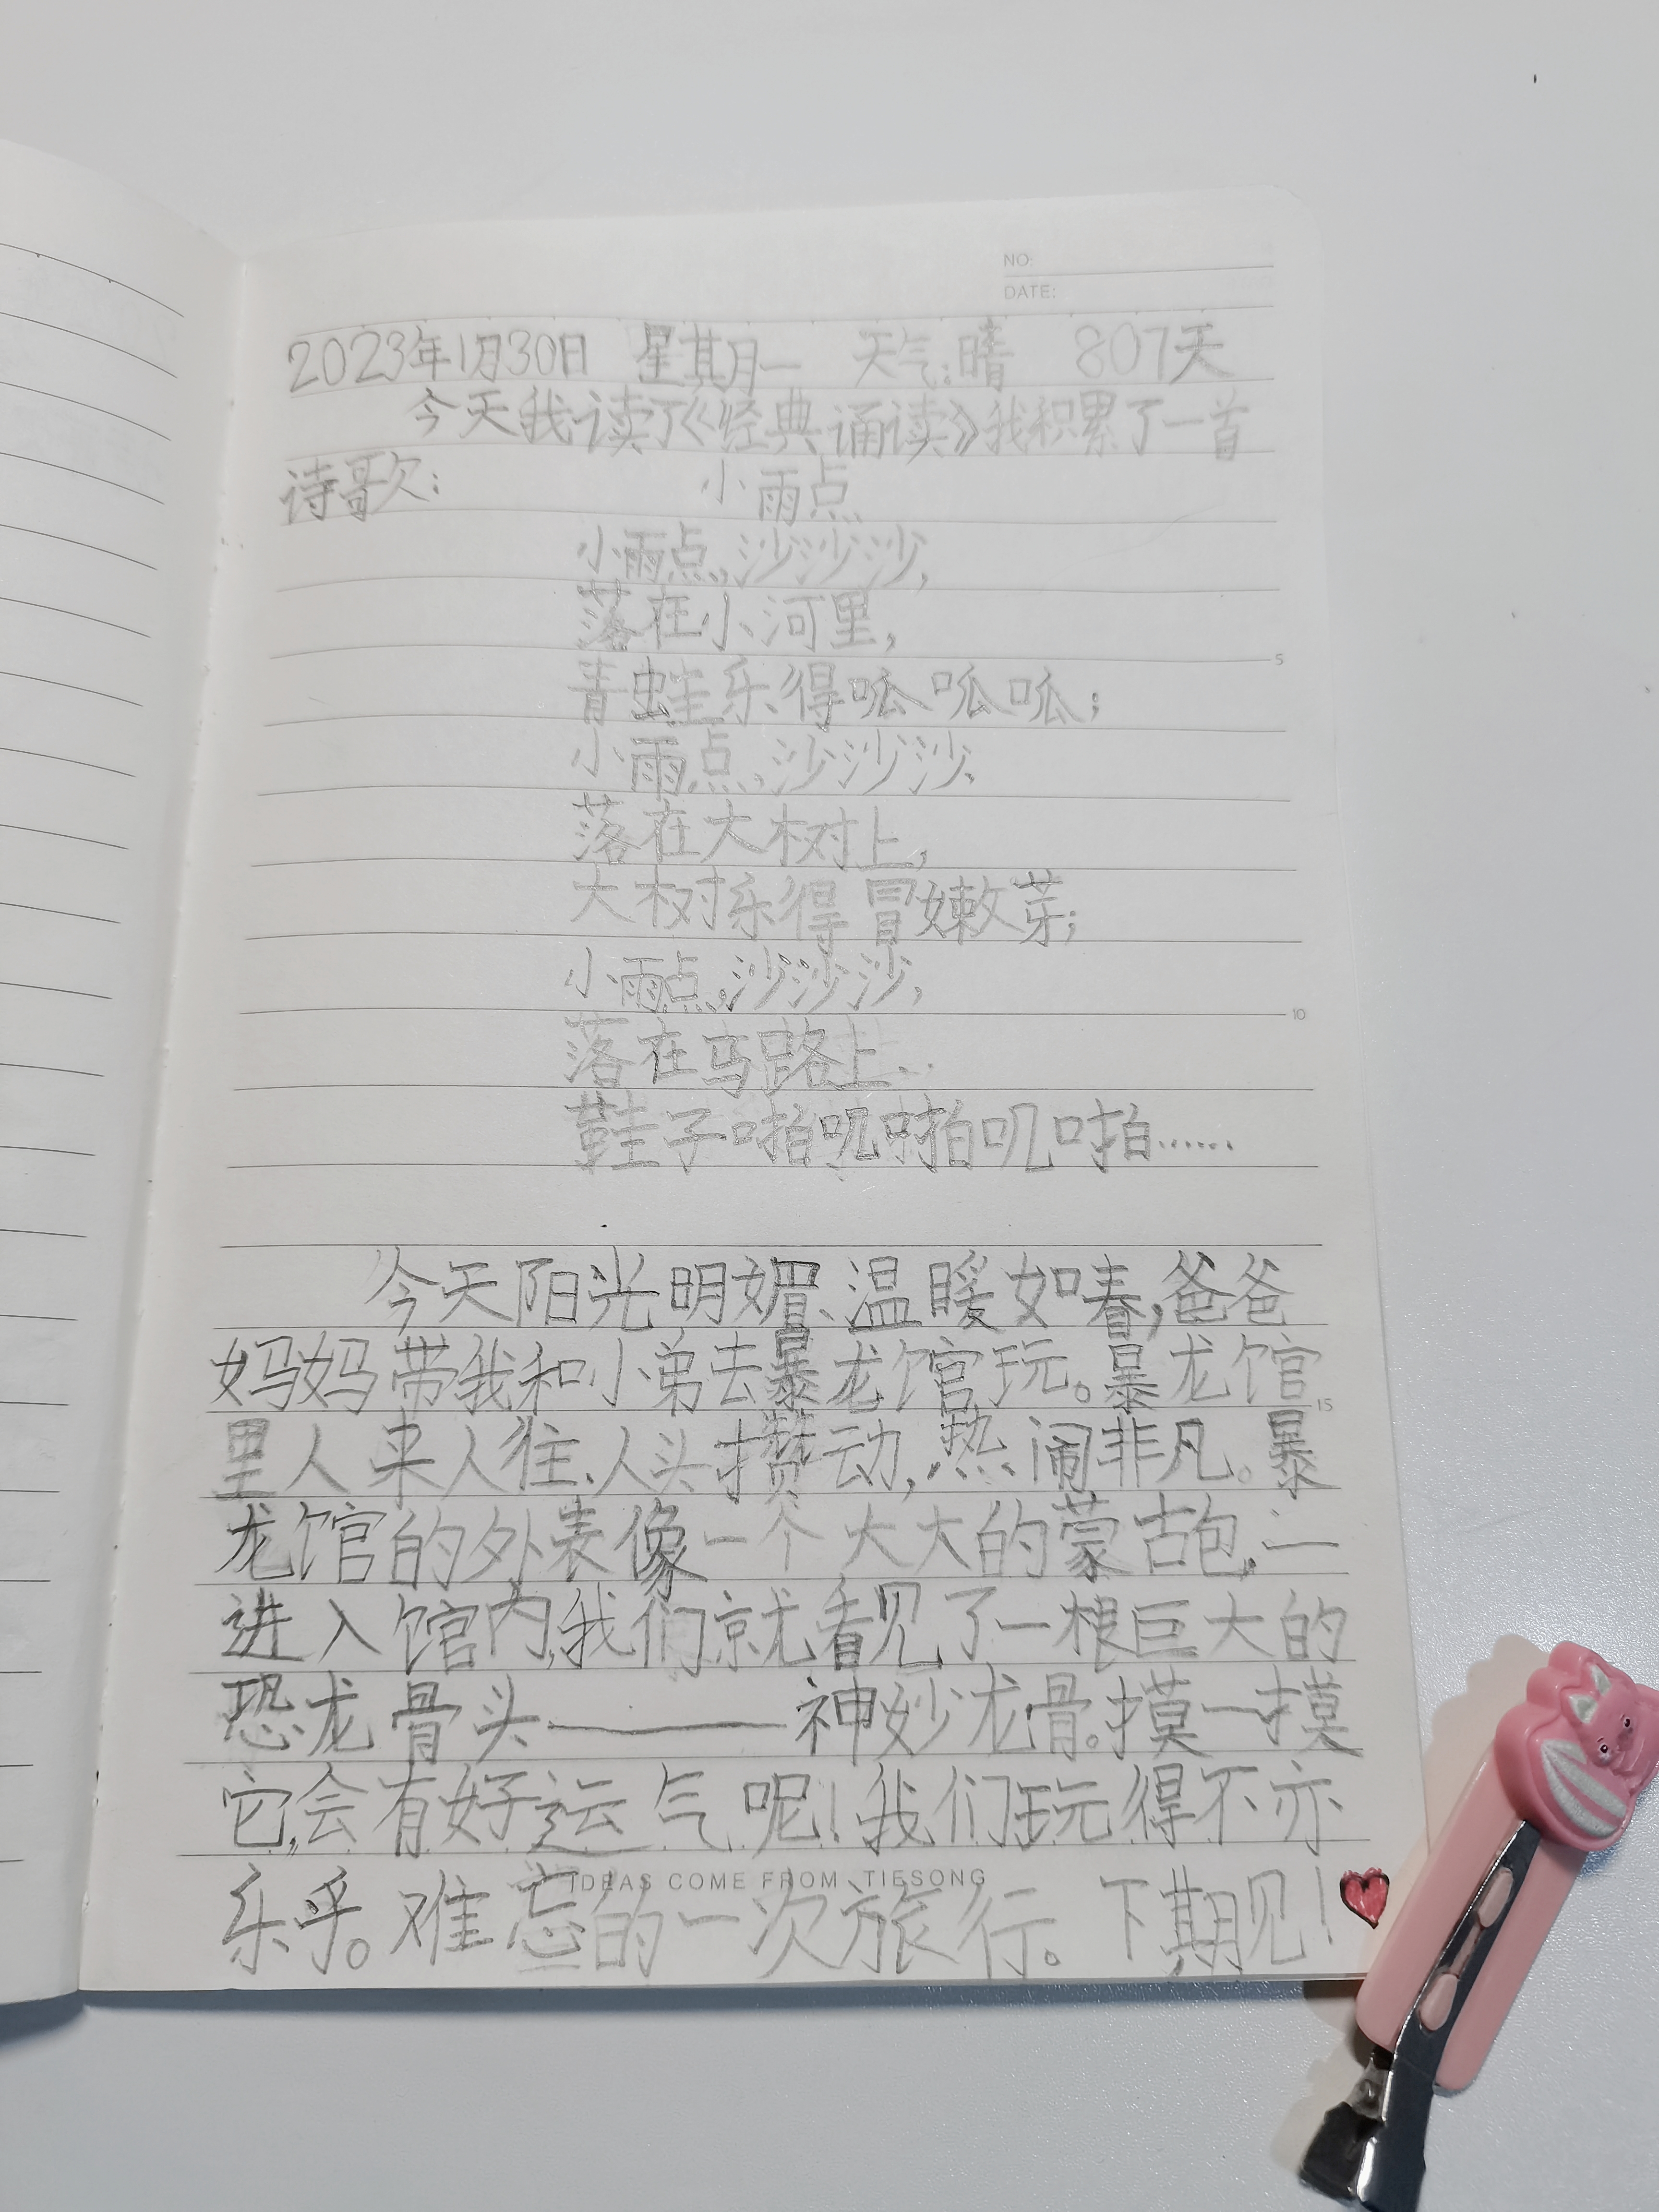 NO:
DATE:
2023年1月30日 星其月一 天气:晴 807天
今天我读了《经典诵读》我积累了一首
诗歌: 小雨点
小雨点,沙沙沙,
落在小河里,
青蛙乐得呱呱呱;
小雨点,沙沙沙,
落在大树上,
大树乐得冒嫩芽;
小雨点,沙沙沙,
落在马路上..
鞋子啪叽啪叽啪……
今天阳光明媚、温暖如春,爸爸
妈妈带我和小弟去暴龙馆玩。暴龙馆
里人来人往、人头攒动,热闹非凡。暴
龙馆的外表像一个大大的蒙古包,一
进入馆内,我们就看见了一根巨大的
恐龙骨头——神妙龙骨。摸一摸
它,会有好运气呢!我们玩得不亦
乐乎。难忘的一次旅行。下期见!
IDEAS COME FROM TIESONG
5
10
15